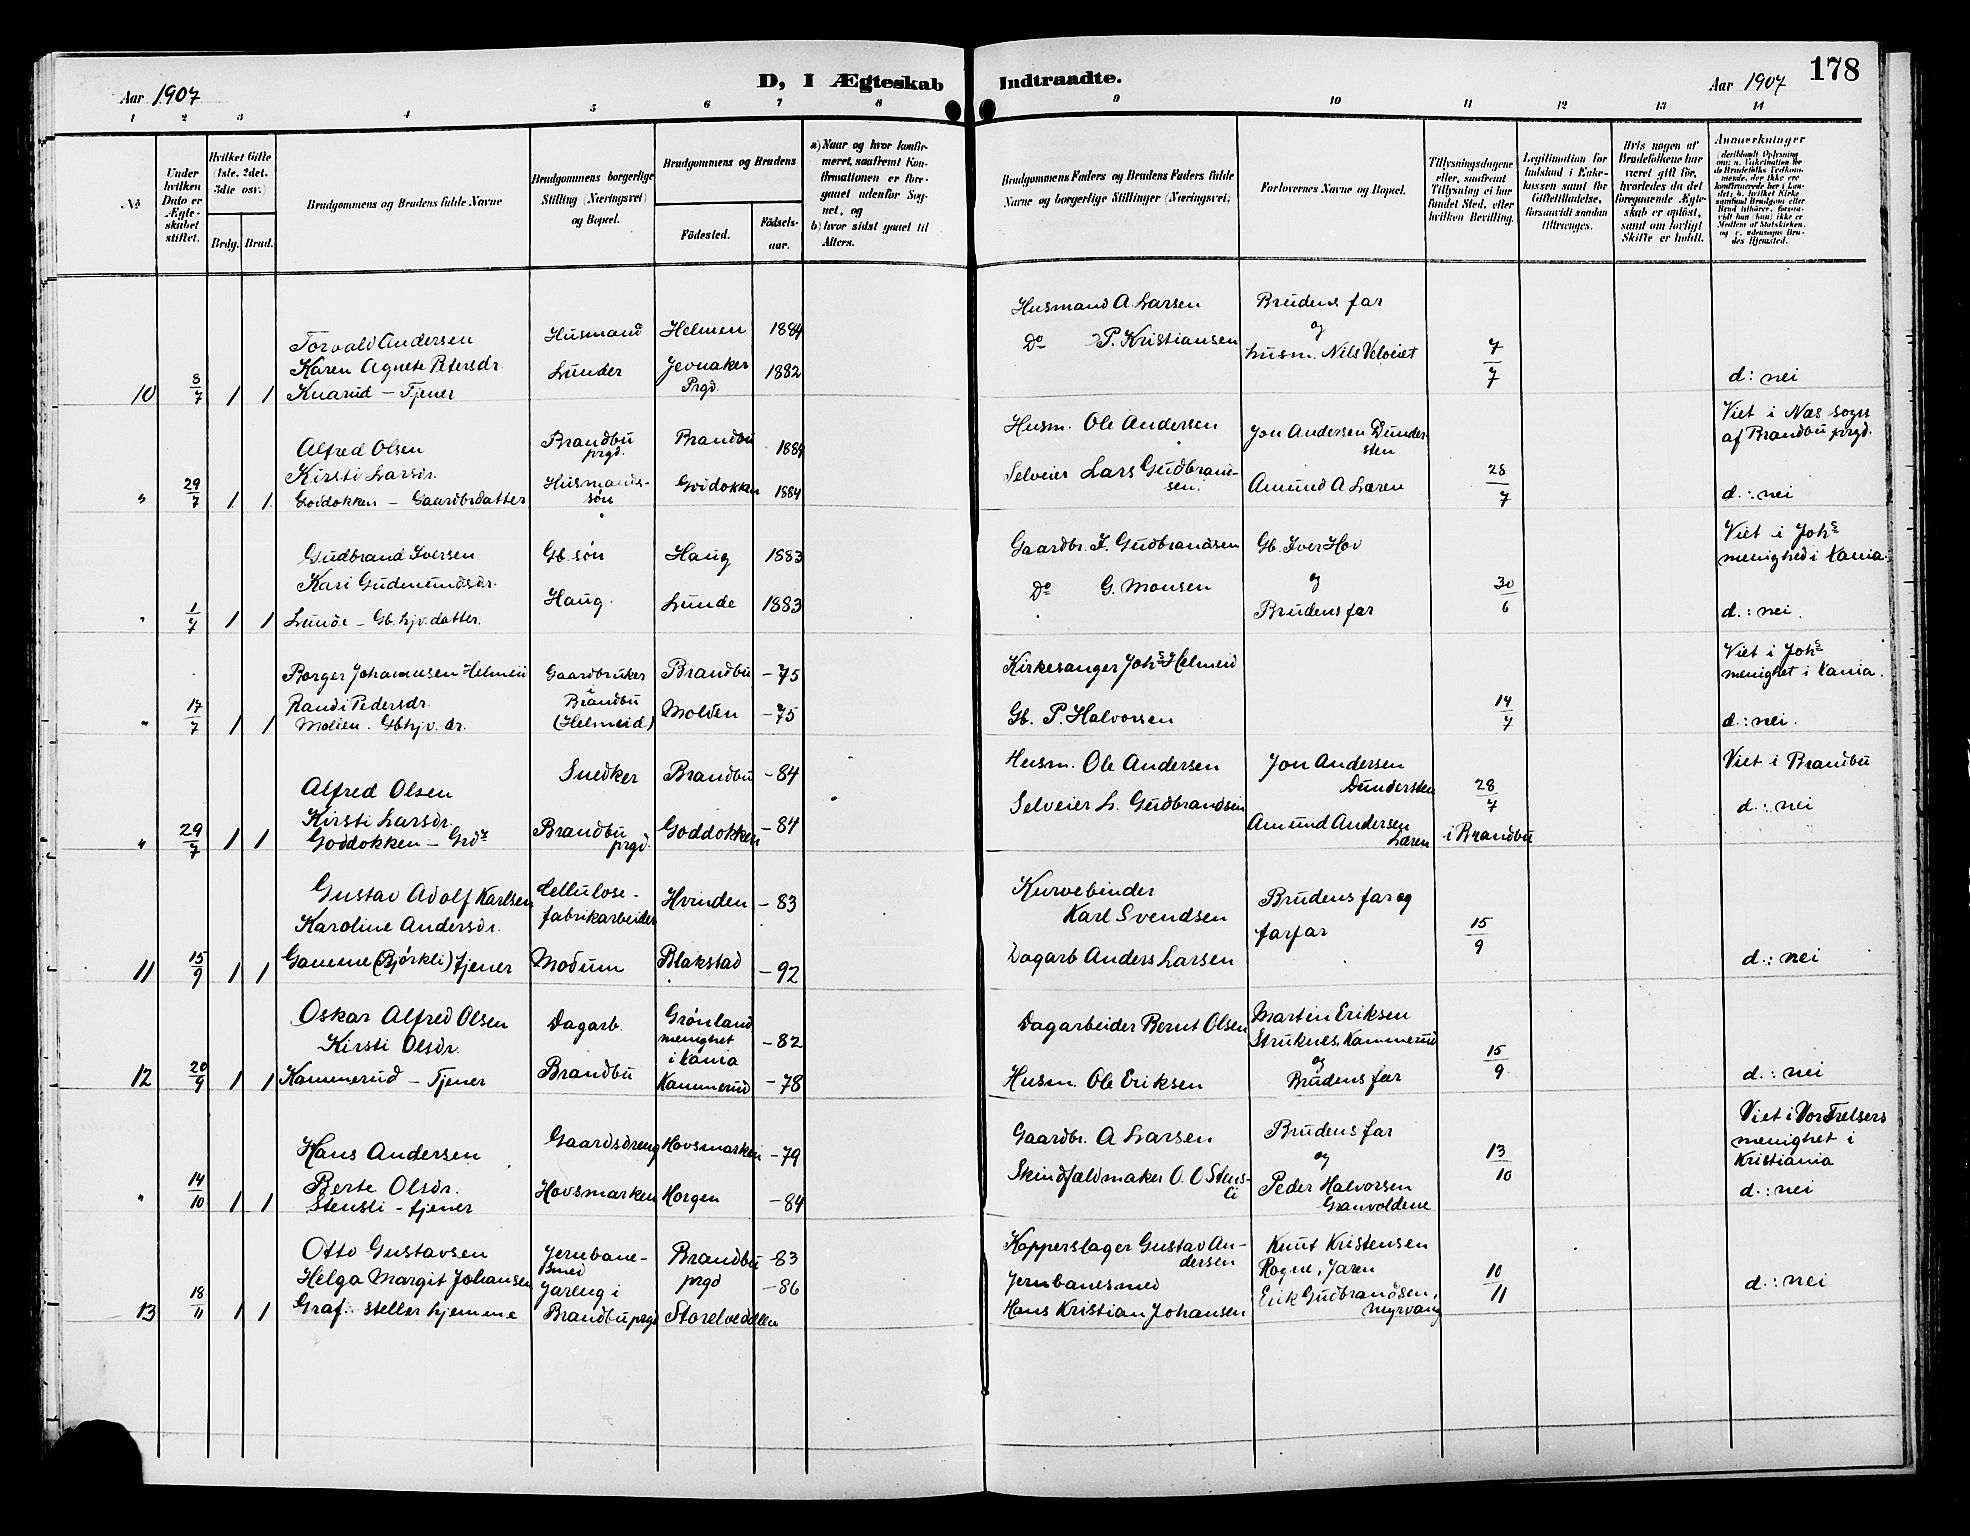 178
D, I Ægteskab Indtraadte.
Aar 1907
Aar 1907
1 2 3 4 5 6 7 8 9 10 11 12 13 14
No
Under hvilken Dato er Ægteskabet stiftet.
Hvilket Gifte (1ste, 2det, 3die osv.)
Brdg. Brud.
Brudgommens og Brudens fulde Navne
Brudgommens borgerlige Stilling (Næringsvei) og Bopæl.
Brudgommens og Brudens
Födested.
Födsels-aar.
a) Naar og hvor konfirmeret, saafremt Konfirmationen er foregaaet udenfor Sognet, og
b) hvor sidst gaaet til Alters.
Brudgommens Faders og Brudens Faders fulde Navne og borgerlige Stillinger (Næringsvei)
Forlovernes Navne og Bopæl.
Tillysningsdagene eller, saafremt Tillysning ei har fundet Sted, efter hvilken Bevilling.
Legitimation for Indskud i Enkekassen samt for Giftetilladelse, forsaavidt saadan tiltrænges.
Hvis nogen af Brudefolkene har været gift för, hvorledes da det foregaaende Ægteskab er oplöst, samt om lovligt Skifte er holdt.
Anmerkninger
10 8/7 1 1
Torvald Andersen
Karen Agnete Petersdr.
Knarud - Tjener
Husmand
Lunder
Helmen 1884
Jevnaker Prgd. 1882
Husmand A. Larsen
Do P. Kristiansen
Brudens far
og
Husm. Nils Velveiet
7/7
d: nei
" 29/7 1 1
Alfred Olsen
Kirsti Larsdr.
Goddokken - Gaardbrdatter
Brandbu prgd.
Husmands-søn
Brandbu 1884
Goddokken 1884
Husm. Ole Andersen
Selveier Lars Gudbrandsen.
Jon Andersen Dundersten
Amund A Læren
28/7
Viet i Næs sogn
af Brandbu prgd.
d.: nei
" 1/7 1 1
Gudbrand Iversen
Kari Gudmundsdr.
Lunde - Gb. hjv. datter.
Gb. søn
Haug.
Haug 1883
Lunde 1883
Gaardbr. I. Gudbrandsen
Do G. Monsen
Gb. Iver Hov
og
Brudens far
30/6
Viet i Johs
menighed i Kania.
d.: nei.
" 17/7 1 1
Borger Johannesen Helmeid
Randi Pedersdr.
Molden. Gbhjv. dr.
Gaardbruker
i
Brandbu
(Helmeid)
Brandbu - 75
Molden - 75
Kirkesanger Johs Helmeid
Gb. P. Halvorsen
14/7
Viet i Johs
menighet i Kania.
d.: nei.
" 29/7 1 1
Alfred Olsen
Kirsti Larsdr.
Goddokken - Grdr
Snedker
Brandbu prgd.
Brandbu - 84
Goddokken - 84
Husm. Ole Andersen
Selveier L. Gudbrandsen
Jon Andersen
Dundersten
Amund Andersen
Læren
28/7
i Brandbu
Viet i Brandbu
d.: nei
11 15/9 1 1
Gustav Adolf Karlsen
Karoline Andersdr.
(Bjørkli) tjener
Cellulose-
fabrikarbeider
Modum
Hvinden - 83
Blakstad - 92
Kurvebinder
Karl Svendsen
Dagarb Anders Larsen
Brudens far og
farfar
15/9
d.: nei
12 20/9 1 1
Oskar Alfred Olsen
Kirsti Olsdr.
Kammerud - Tjener
Dagarb.
Brandbu
Grønland
menighet
i Kania - 82
Kammerud - 78
Dagarbeider Bernt Olsen
Husm. Ole Eriksen
Martin Eriksen
Struknes, Kammerud
og
Brudens far
15/9
d.: nei
" 14/10 1 1
Hans Andersen
Berte Olsdr.
Stensli - tjener
Gaardsdreng
Hovsmarken
Hovsmarken - 79
Horgen - 84
Gaardbr. A Larsen
Skindfaldmaker O. O Stensli
Brudens far
og
Peder Halvorsen
Granvoldene
13/10
Viet i Vor Frelsers
menighet i
Kristiania
d.: nei
13 18/11 1 1
Otto Gustavsen
Helga Margit Johansen
Graf: steller hjemme
Jernbane-
smed
Jareng i
Brandbu prgd
Brandbu prgd - 83
Storelvedalen - 86
Kopperslager Gustav Andersen
Jernbanesmed
Hans Kristian Johansen
Knut Kristensen
Rogne, Jaren
Erik Gudbrandsen,
Myrvang
10/11
d.: nei